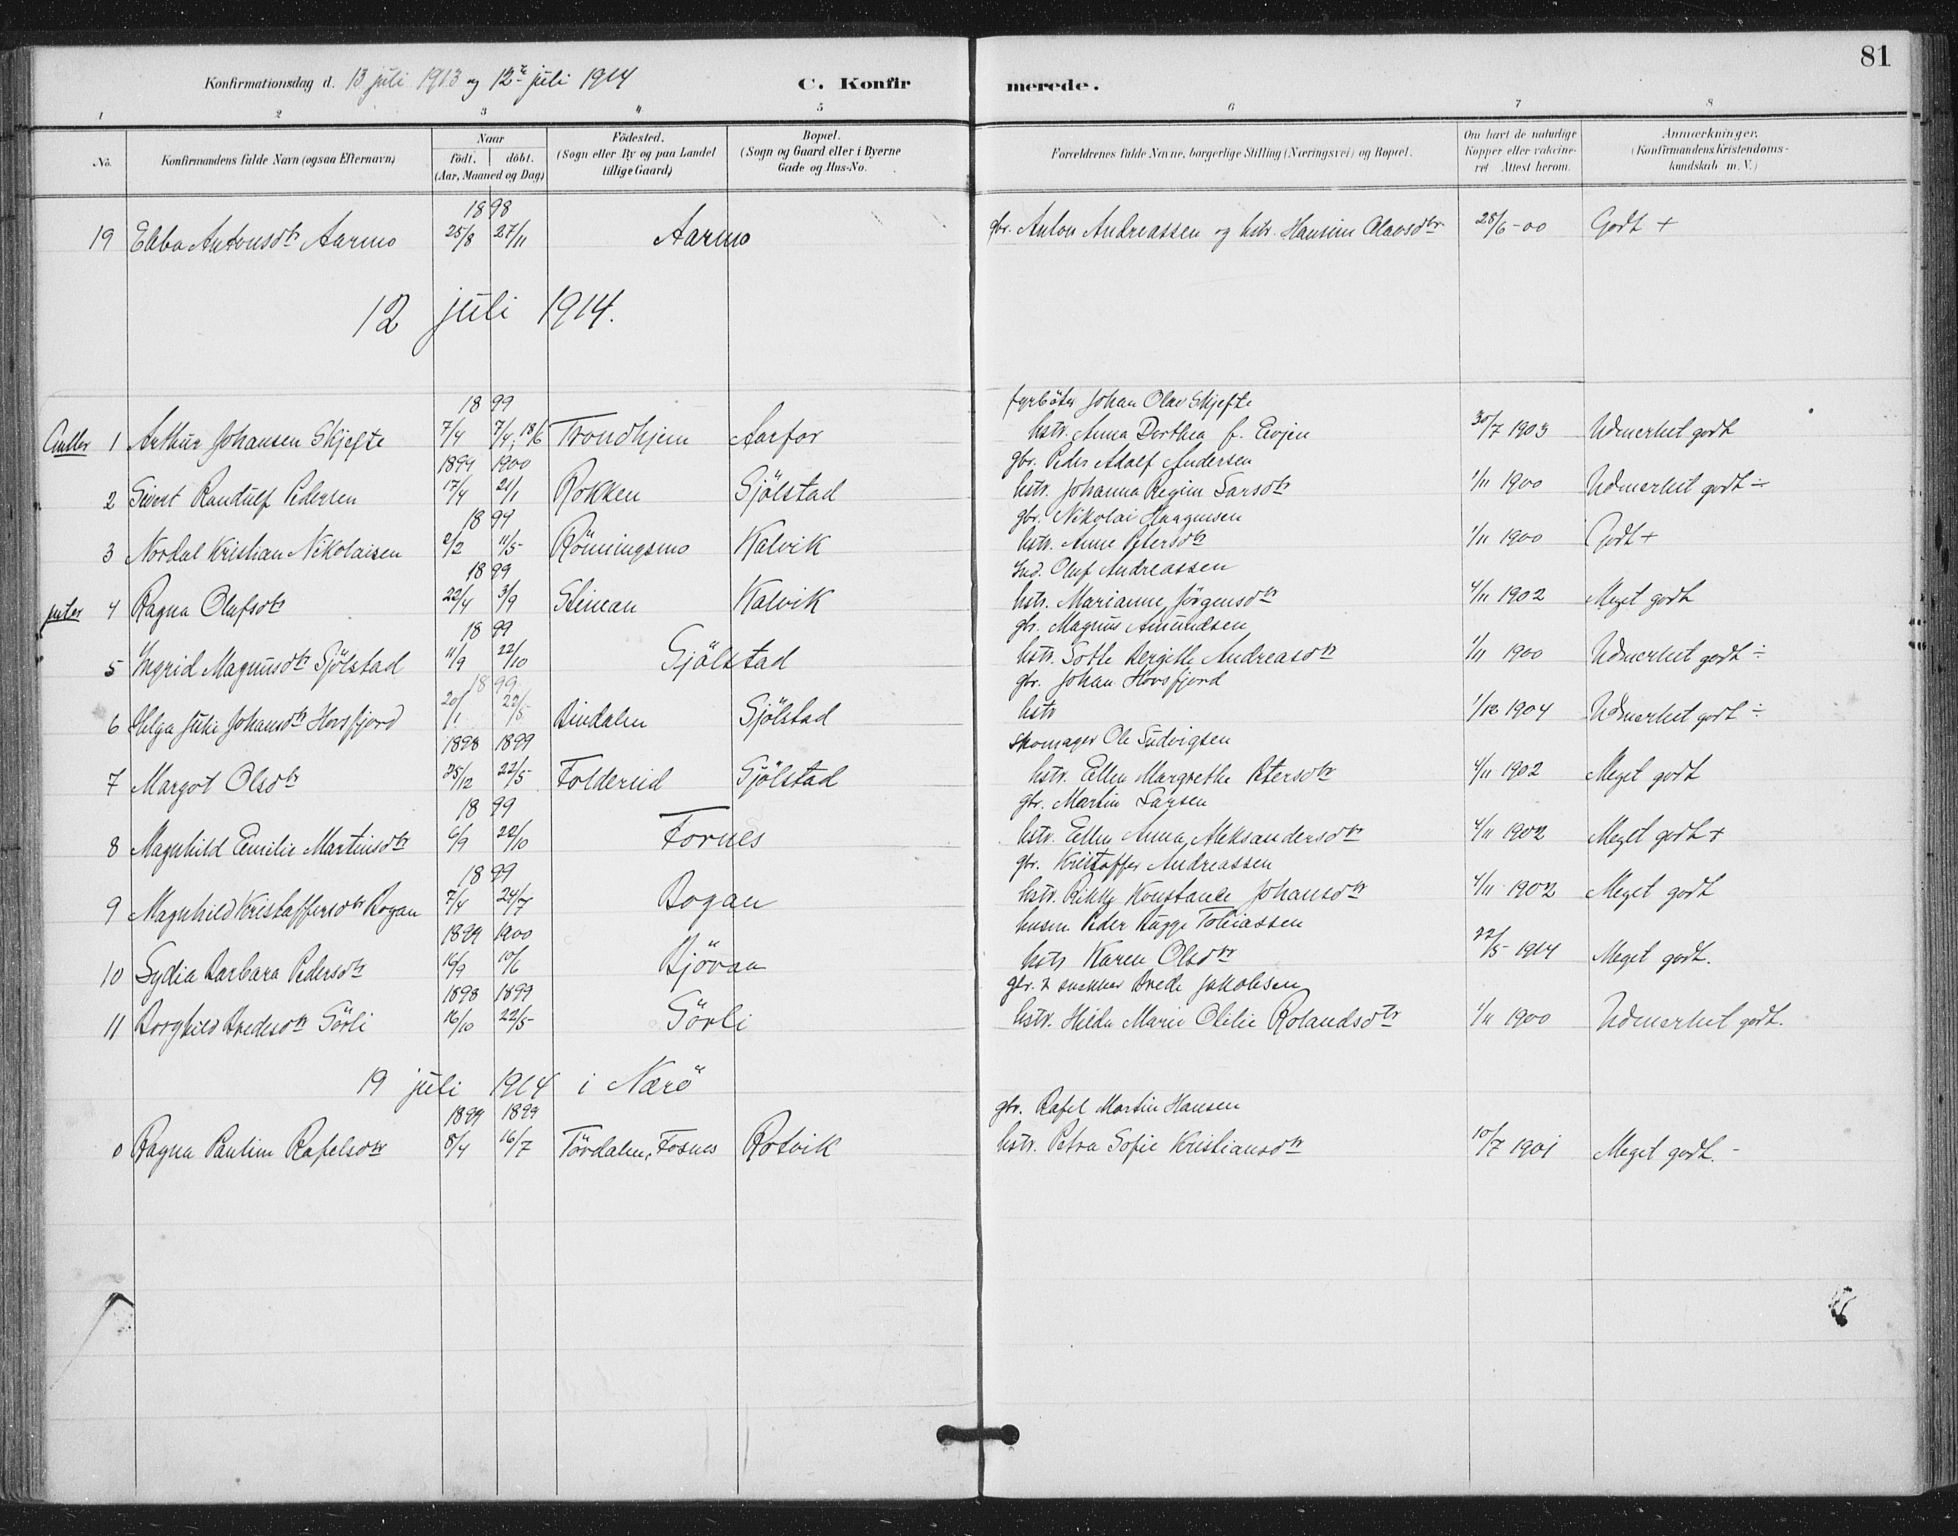 81
Konfirmationsdag d. 13 juli 1913 og 12te juli 1914 C. Konfirmerede.
1 2 3 4 5 6 7 8
No. Konfirmandens fulde Navn (ogsaa Efternavn) Naar født. døbt. (Aar, Maaned og Dag) Födested. (Sogn eller By og paa Landet tillige Gaard) Bopæl. (Sogn og Gaard eller i Byerne Gade og Hus-No. Forældrenes fulde Navne, borgerlige Stilling (Næringsvei) og Bopæl. Om havt de naturlige Kopper eller vakcineret Attest herom. Anmærkninger. (Konfirmandens Kristendomskundskab m. V.)
1898
19 Ebba Antonsdtr Aarmo 25/8 27/11 Aarmo gbr. Anton Andreassen og hstr. Hansine Olavsdtr 28/6-00 Godt +
12 juli 1914.
1899 fyrbøter Johan Olav Skjefte
1 Arthur Johansen Skjefte 7/4 7/4, 18/6 Trondhjem Aarfor hstr. Anna Dorthea f. Evjen 30/7 1903 Udmerket godt
1899 1900 gbr. Peder Adolf Andersen
2 Sivert Randulf Pedersen 17/4 21/1 Rokken Sjölstad hstr. Johanna Regine Larsdtr 1/11 1900 Udmerket godt ÷
1899 gbr. Nikolai Haagensen
3 Nordal Kristian Nikolaisen 2/2 11/5 Rönningsmo Kalvik hstr. Anne Petersdtr 1/11 1900 Godt +
1899 Ind. Oluf Andreassen
4 Ragna Olufsdtr 22/4 3/9 Steinan Kalvik hstr. Marianne Jörgensdtr 4/11 1902 Meget godt
1899 gbr. Magnus Amundsen
5 Ingrid Magnusdtr Sjölstad 11/9 22/10 Sjölstad hstr. Lotte Bergitte Andreasdtr 1/11 1900 Udmerket godt ÷
1899 gbr. Johan Horsfjord
6 Helga Juli Johansdtr Horsfjord 20/1 22/5 Bindalen Sjölstad hstr 1/12 1904 Udmerket godt ÷
1898 1899 Skomager Ole Ludvigsen
7 Margot Olsdtr 25/12 22/5 Foldereid Sjölstad hstr. Ellen Margrethe Petersdtr 4/11 1902 Meget godt
1899 gbr. Martin Larsen
8 Magnhild Emilie Martinsdtr 6/9 22/10 Fornes hstr. Ellen Anna Aleksandersdtr 4/11 1902 Meget godt +
1899 gbr. Kristoffer Andreassen
9 Magnhild Kristoffersdtr Bogan 7/4 24/7 Bogan hstr. Rikke Konstance Johansdtr 4/11 1902 Meget godt
1899 1900 husm Peder Bugge Tobiassen
10 Lydia Barbara Pedersdtr 16/9 10/6 Björaa hstr Karen Olsdtr 22/5 1914 Meget godt.
1898 1899 gbr. & snekker Brede Jakobsen
11 Borghild Bredesdtr Sörli 16/10 22/5 Sörli hstr. Hilda Marie Otilie Rolandsdtr 1/11 1900 Udmerket godt.
19 juli 1914 i Nærö
1899 1899 gbr. Rafel Martin Hansen
0 Ragna Pauline Rafelsdtr 8/4 16/7 Tördalen, Fosnes Rotvik hstr. Petra Sofie Kristiansdtr 10/7 1901 Meget godt. -